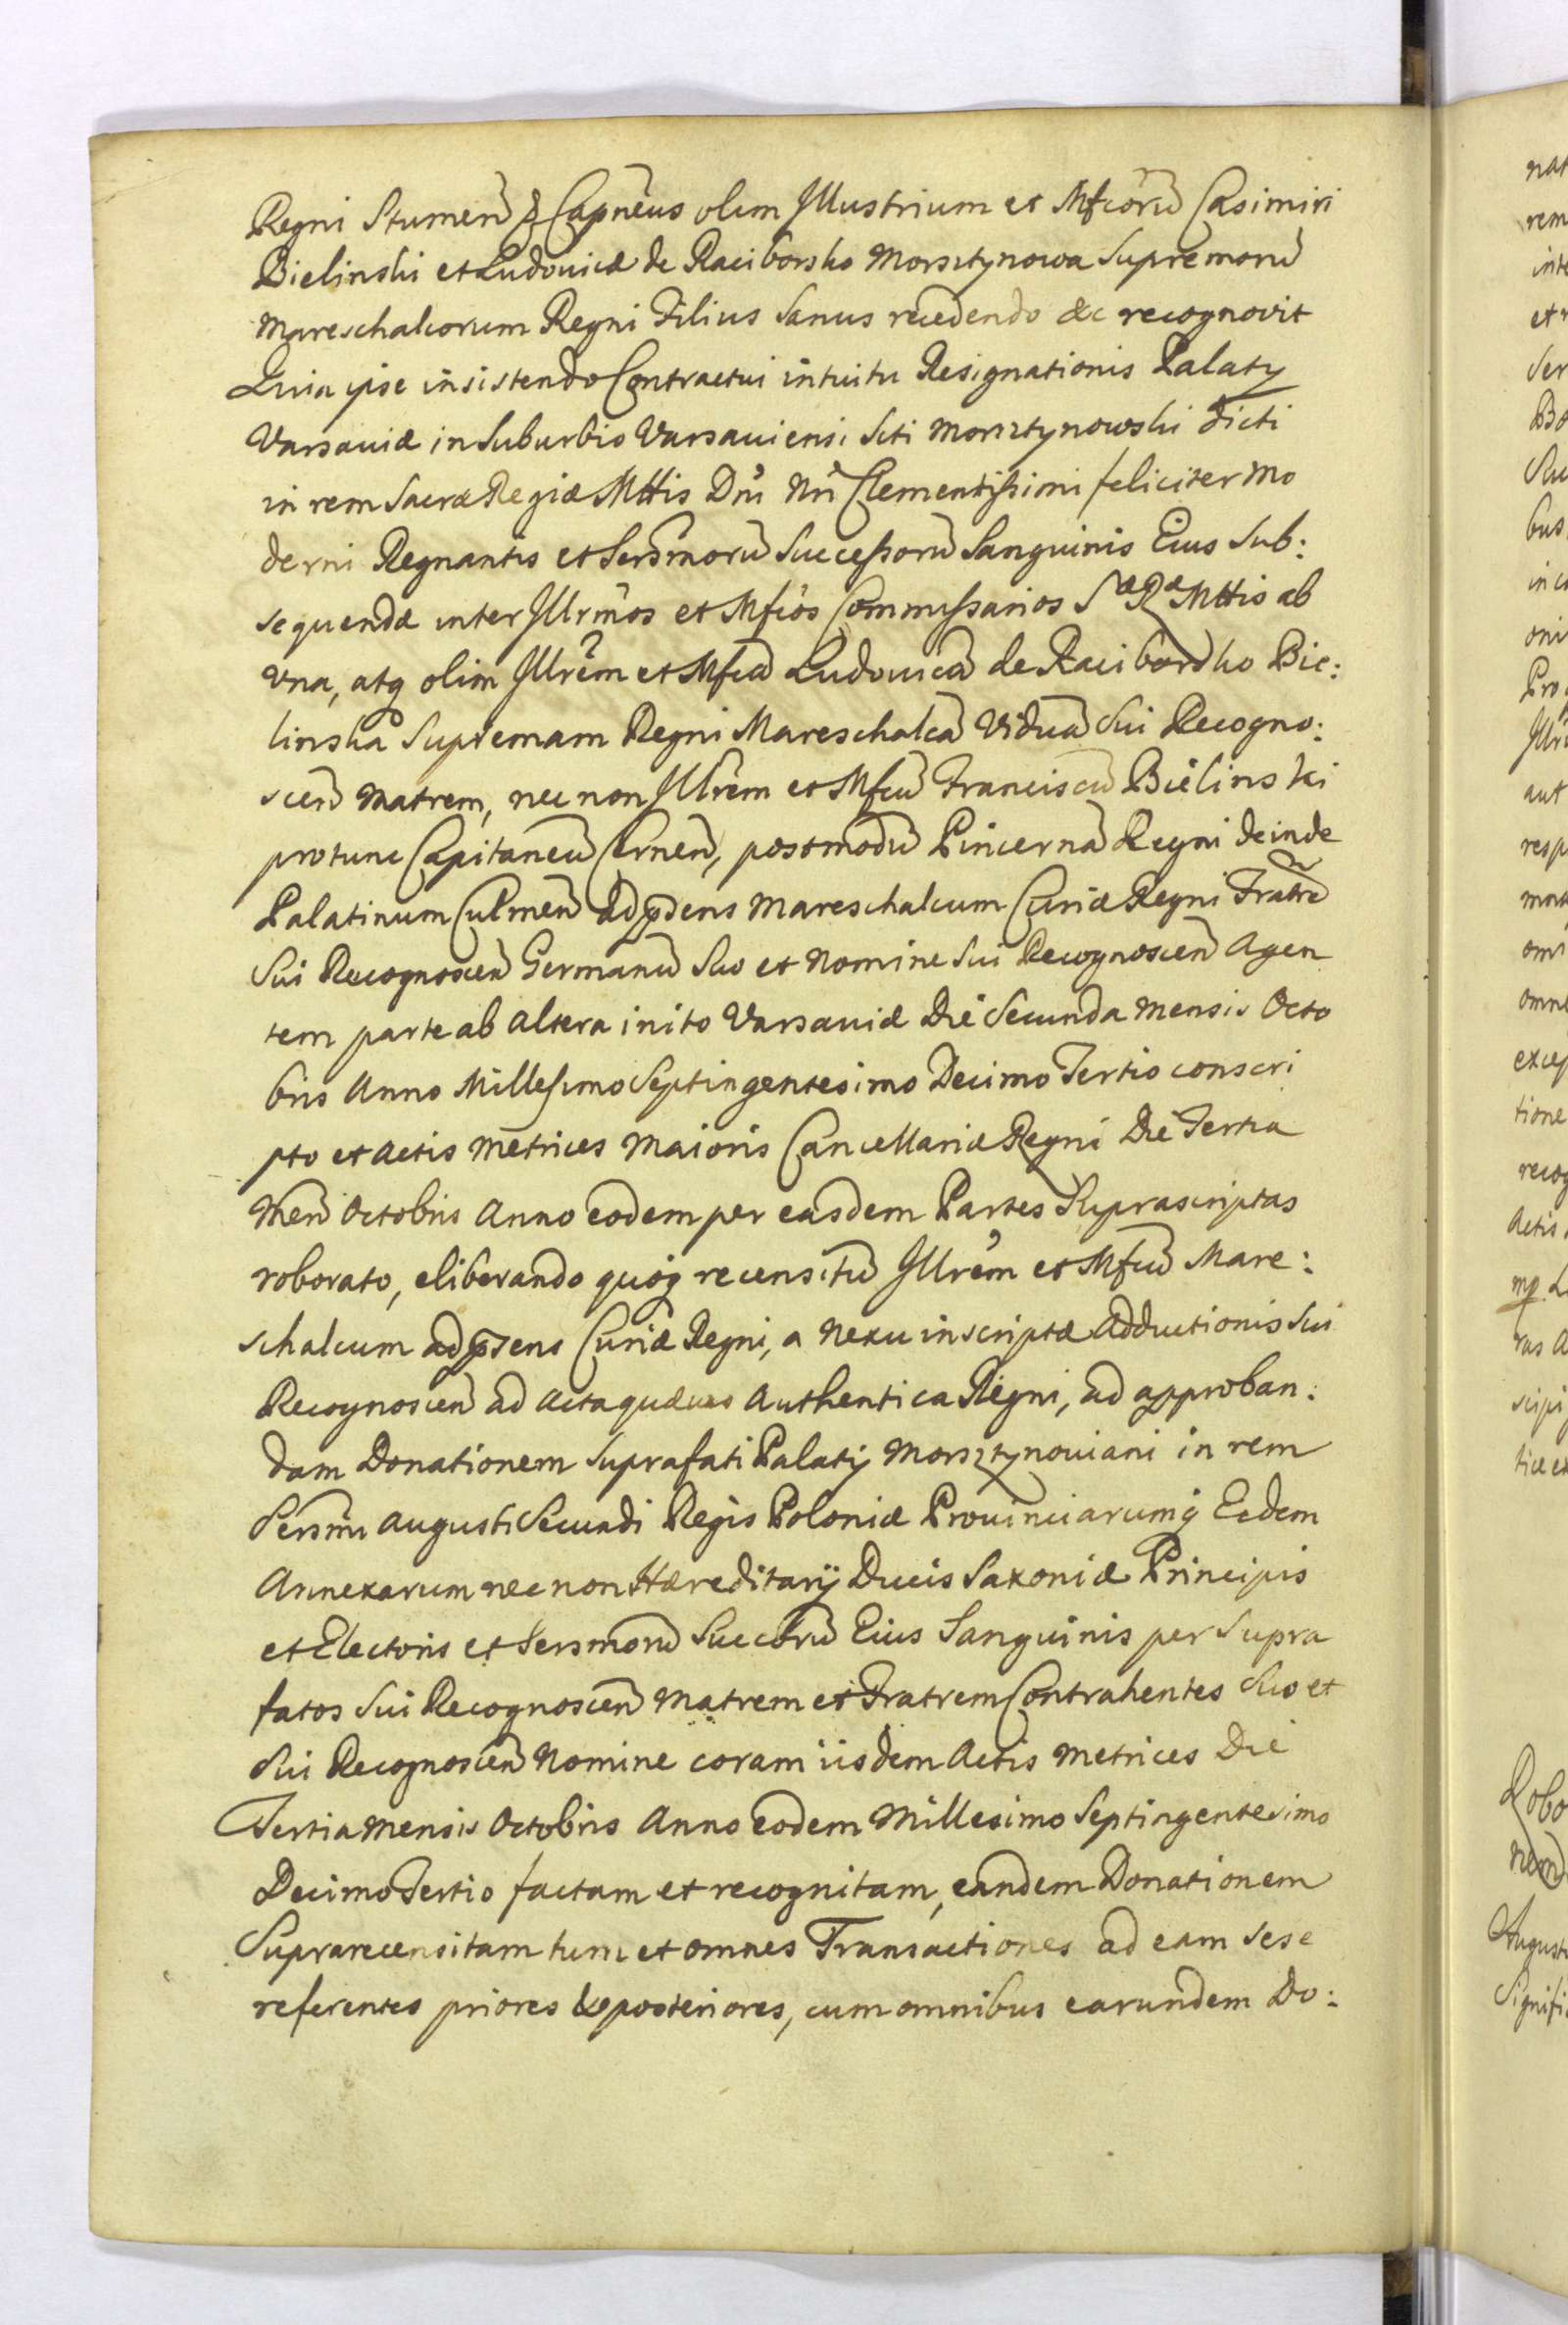 Regni Stumeñ & Capnẽus olim Jllustrium et Mfcorũ Casimiri
Bielinski et Ludovicæ de Raciborsko Morsztynowa Supremorũ
Mareschalcorum Regni Filius Sanus recedendo &c recognovit
Quia ipse insistendo Contractui intuitu Resignationis Palatÿ
Varsaviæ in Suburbio Varsaviensi Siti Morsztynowski dicti
in rem Sacræ Regiæ Mttis Dni Nri Clementissimi feliciter Mo
derni Regnantis et Sersmorũ Successorũ Sanguinis Eius Sub:
sequendæ inter Jllrmos et Mfcos Commissarios Sæ Ræ Mttis ab
Vna, atq olim Jllrem et Mfcã Ludovicã de Raciborsko Bie:
linska Supremam Regni Mareschalcã Viduã Sui Recogno:
sceñ Matrem, nec non Jllrem et Mfcũ Franciscũ Bielinski
protunc Capitaneũ Cerneñ, postmodũ Pincernã Regni deinde
Palatinum Culmeñ Ad psens Mareschalcum Curiæ Regni Fratrẽ
Sui Recognosceñ Germanũ Suo et Nomine Sui Recognosceñ Agen
tem parte ab altera inito Varsaviæ Die Secunda Mensis Octo
bris Anno Millesimo Septingentesimo Decimo Tertio conscri
pto et Actis Metrices Maioris Cancellariæ Regni Die Tertia
Meñ Octobris Anno eodem per easdem Partes Suprascriptas
roborato, eliberando quoq recensitũ Jllrem et Mfcũ Mare:
schalcum ad psens Curiæ Regni, a Nexu inscriptæ Adductionis Sui
Recognosceñ ad Acta quævis Authentica Regni, ad approban:
dam Donationem Suprafati Palatij Morsztynoviani in rem
Sersmi Augusti Secundi Regis Poloniæ Provinciarumq Eidem
Annexarum nec non Hæreditarij Ducis Saxoniæ Principis
et Electoris et Sersmorũ Succorũ Eius Sanguinis per Supra
fatos Sui Recognosceñ Matrem et Fratrem Contrahentes Suo et
Sui Recognosceñ Nomine coram iisdem Actis Metrices Die
Tertia Mensis Octobris Anno eodem Millesimo Septingentesimo
Decimo Tertio factam et recognitam, eandem Donationem
Suprarecensitam tum et omnes Transactiones ad eam sese
referentes priores & posteriores, cum omnibus earundem Do: